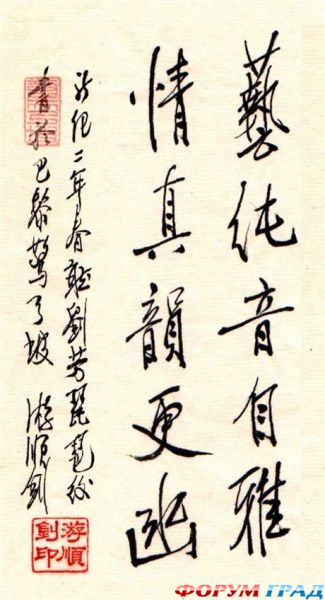 藝純音自雅
情真韻更幽
新紀二年春聽劉芳琵琶後
書於巴黎了坡 游順釗
游順
釗印
ФОРУМ ГРАД